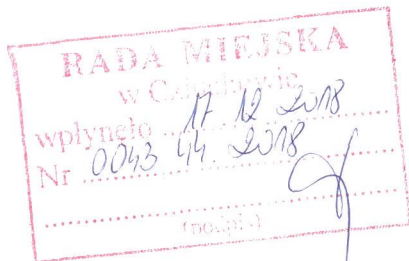 RADA MIEJSKA
w
wpłynęło 17 12 2018
Nr 0043 44. 2018
(podpis)